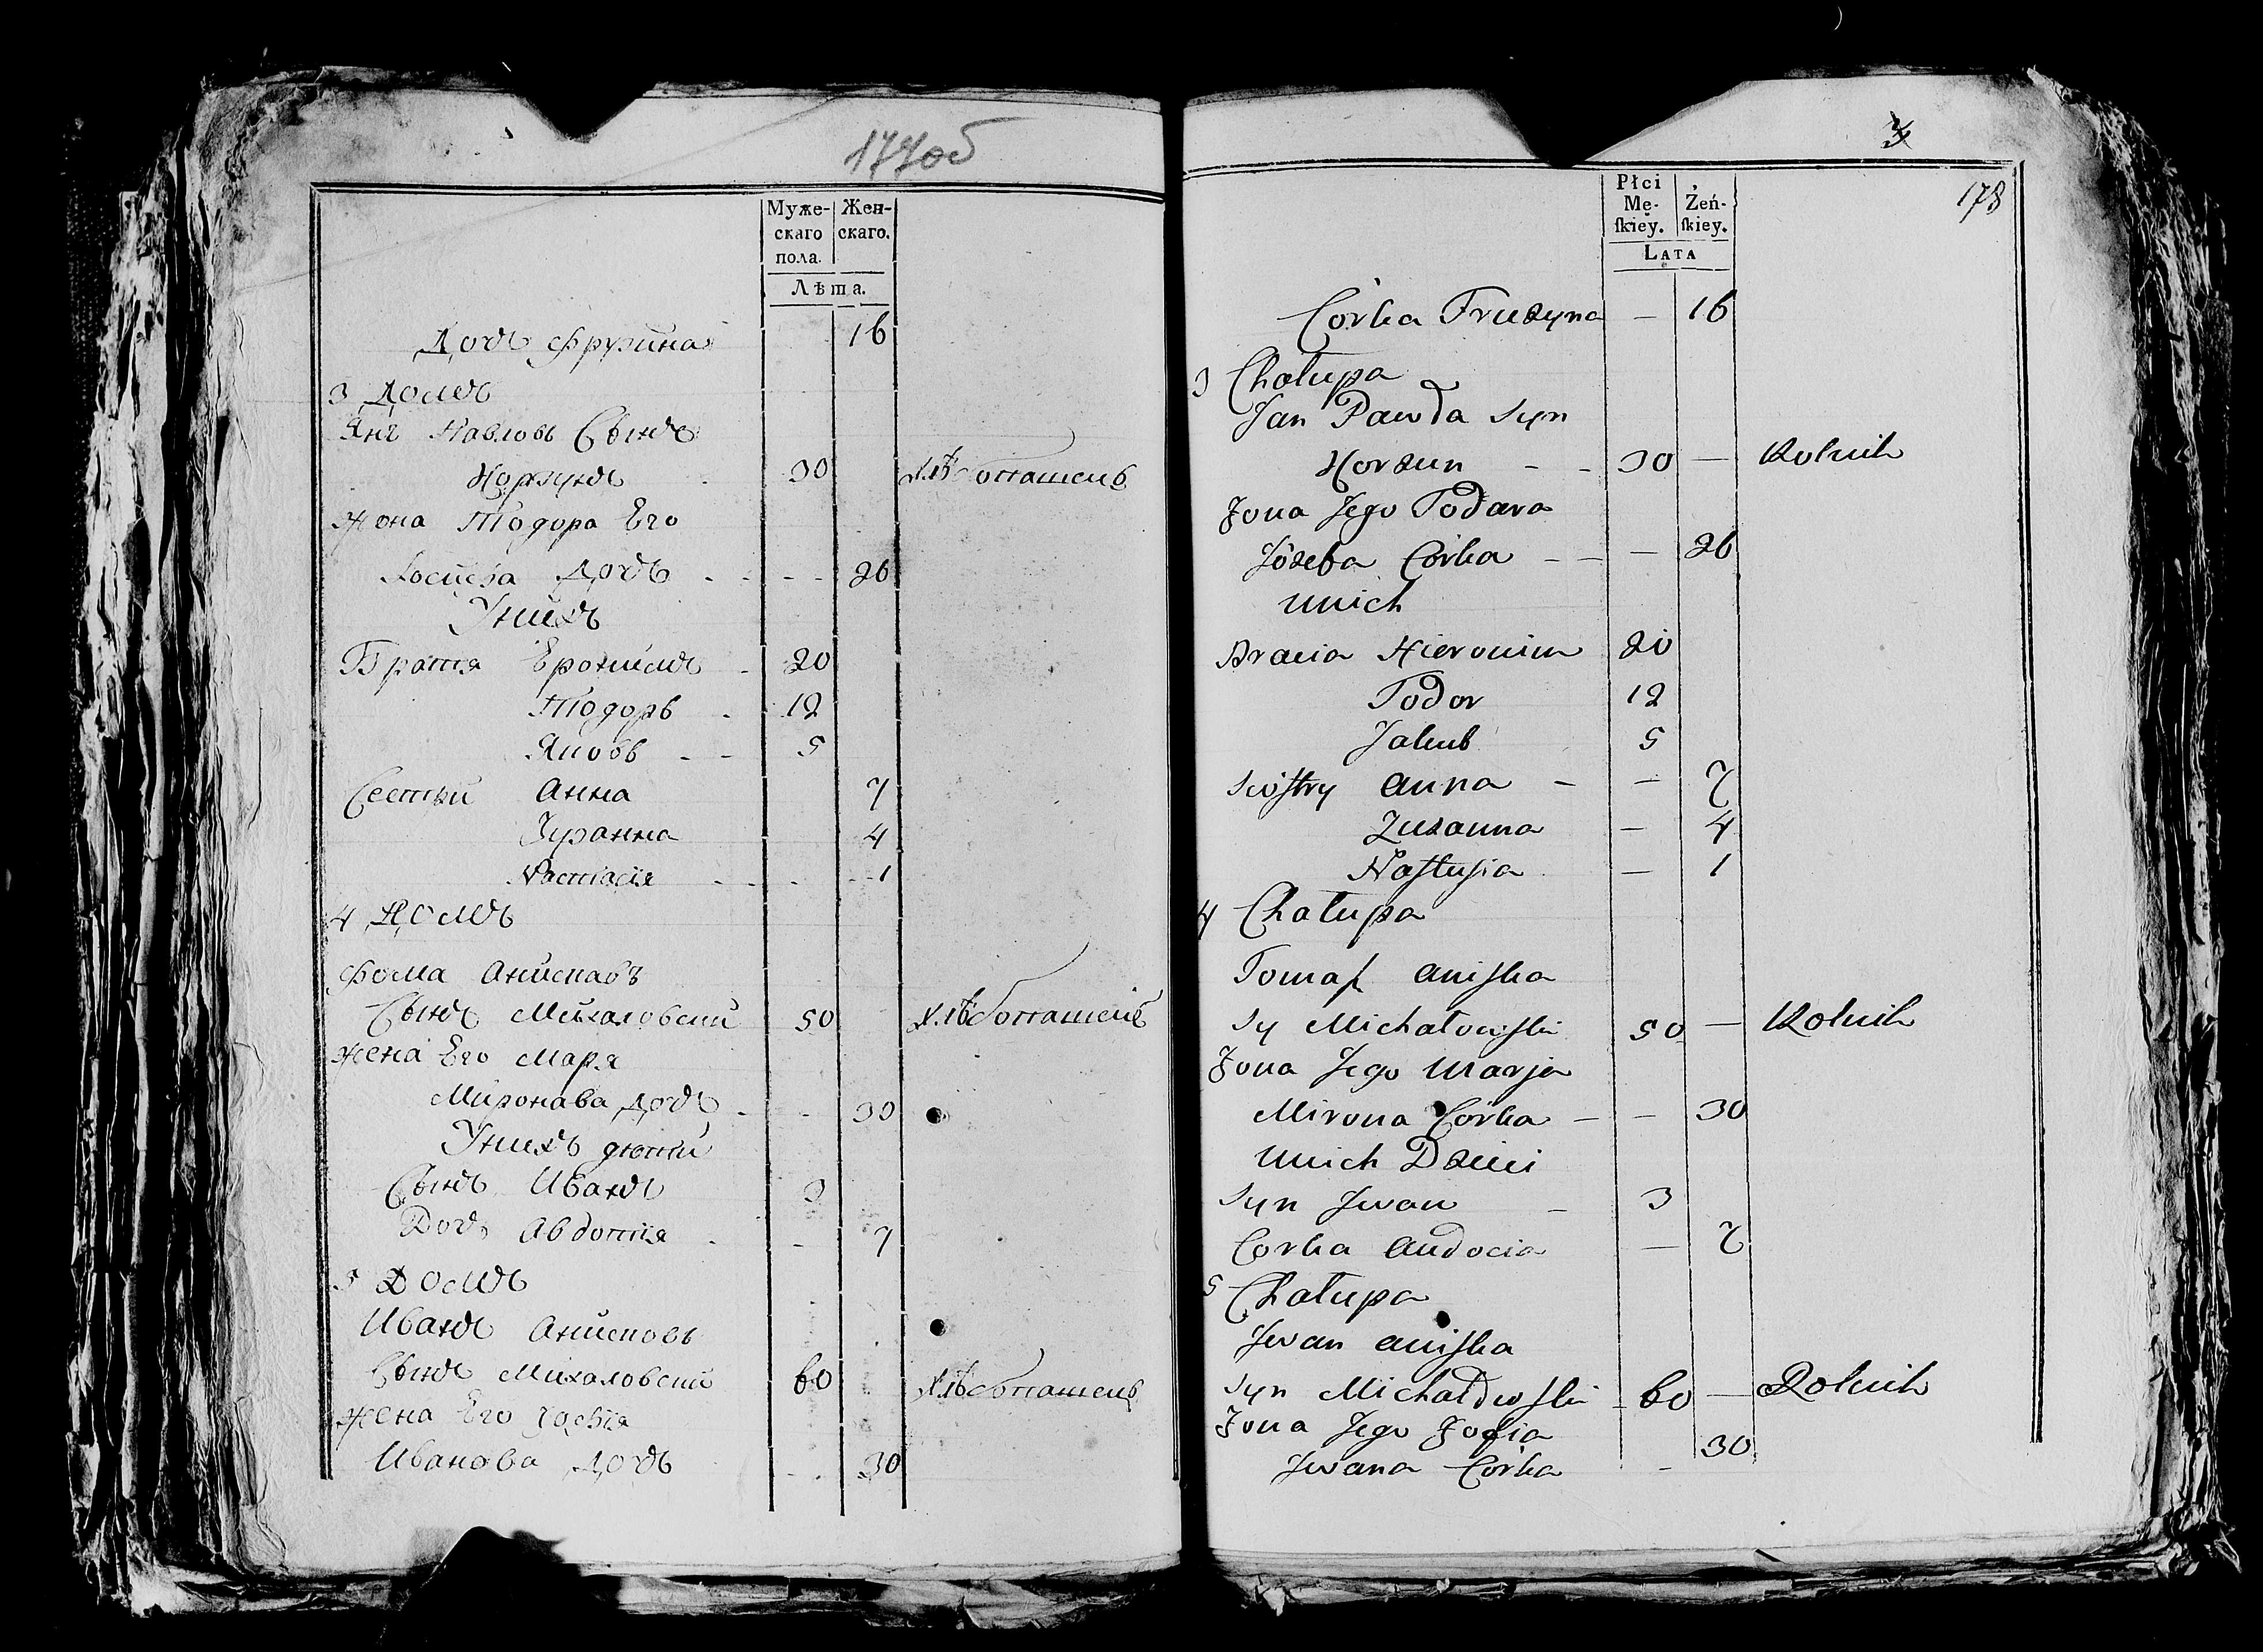 177об
Муже-
скаго
пола.
Жен-
скаго.
Лѣта.
Дочь Фрузина 16
3 Домъ
Янъ Павловъ Сынъ
Корзунъ 30 Хлѣбопашецъ
жена Тодора Его
Іосифа Дочь - - - - 26
Унихъ
Братя Еронимъ - 20
Тодоръ - 12
Якобъ - - 5
Сестри Анна 7
Зузанна 4
Настасія - - - - 1
4 Домъ
Фома Анисковъ
Сынъ Михаловскій 50 Хлѣбопашецъ
жена Его Маря
Миронава Дочь - - 30
Унихъ дѣти
Сынъ Иванъ 3
Дочь Авдотія - - 7
5 Домъ
Иванъ Анисковъ
Сынъ Михаловскій 60 Хлѣбопашецъ
жена Его Зофія
Иванова Дочь - - 30
3
178
Płci
Mę-
ſkiey.
Żeń-
ſkiey.
LATA
Corka Fruzyna — 16
3 Chałupa
Jan Pawła Syn
Korzun - - 30 — Rolnik
Zona Jego Todora
Józefa Córka - - — 26
Unich
Bracia Hieronim 20
Todor 12
Jakub 5
Siostry Anna - — 7
Zuzanna — 4
Naſtuſia — 1
4 Chałupa
Tomaſz Aniſka
Sy Michałowſki 50 — Rolnik
Zona Jego Marja
Mirona Córka - — 30
Unich Dzieci
Syn Jwan - 3
Corka Audocia — 7
5 Chałupa
Jwan Aniſka
Syn Michałowſki - 60 — Rolnik
Zona Jego Zofia
Jwana Córka - 30